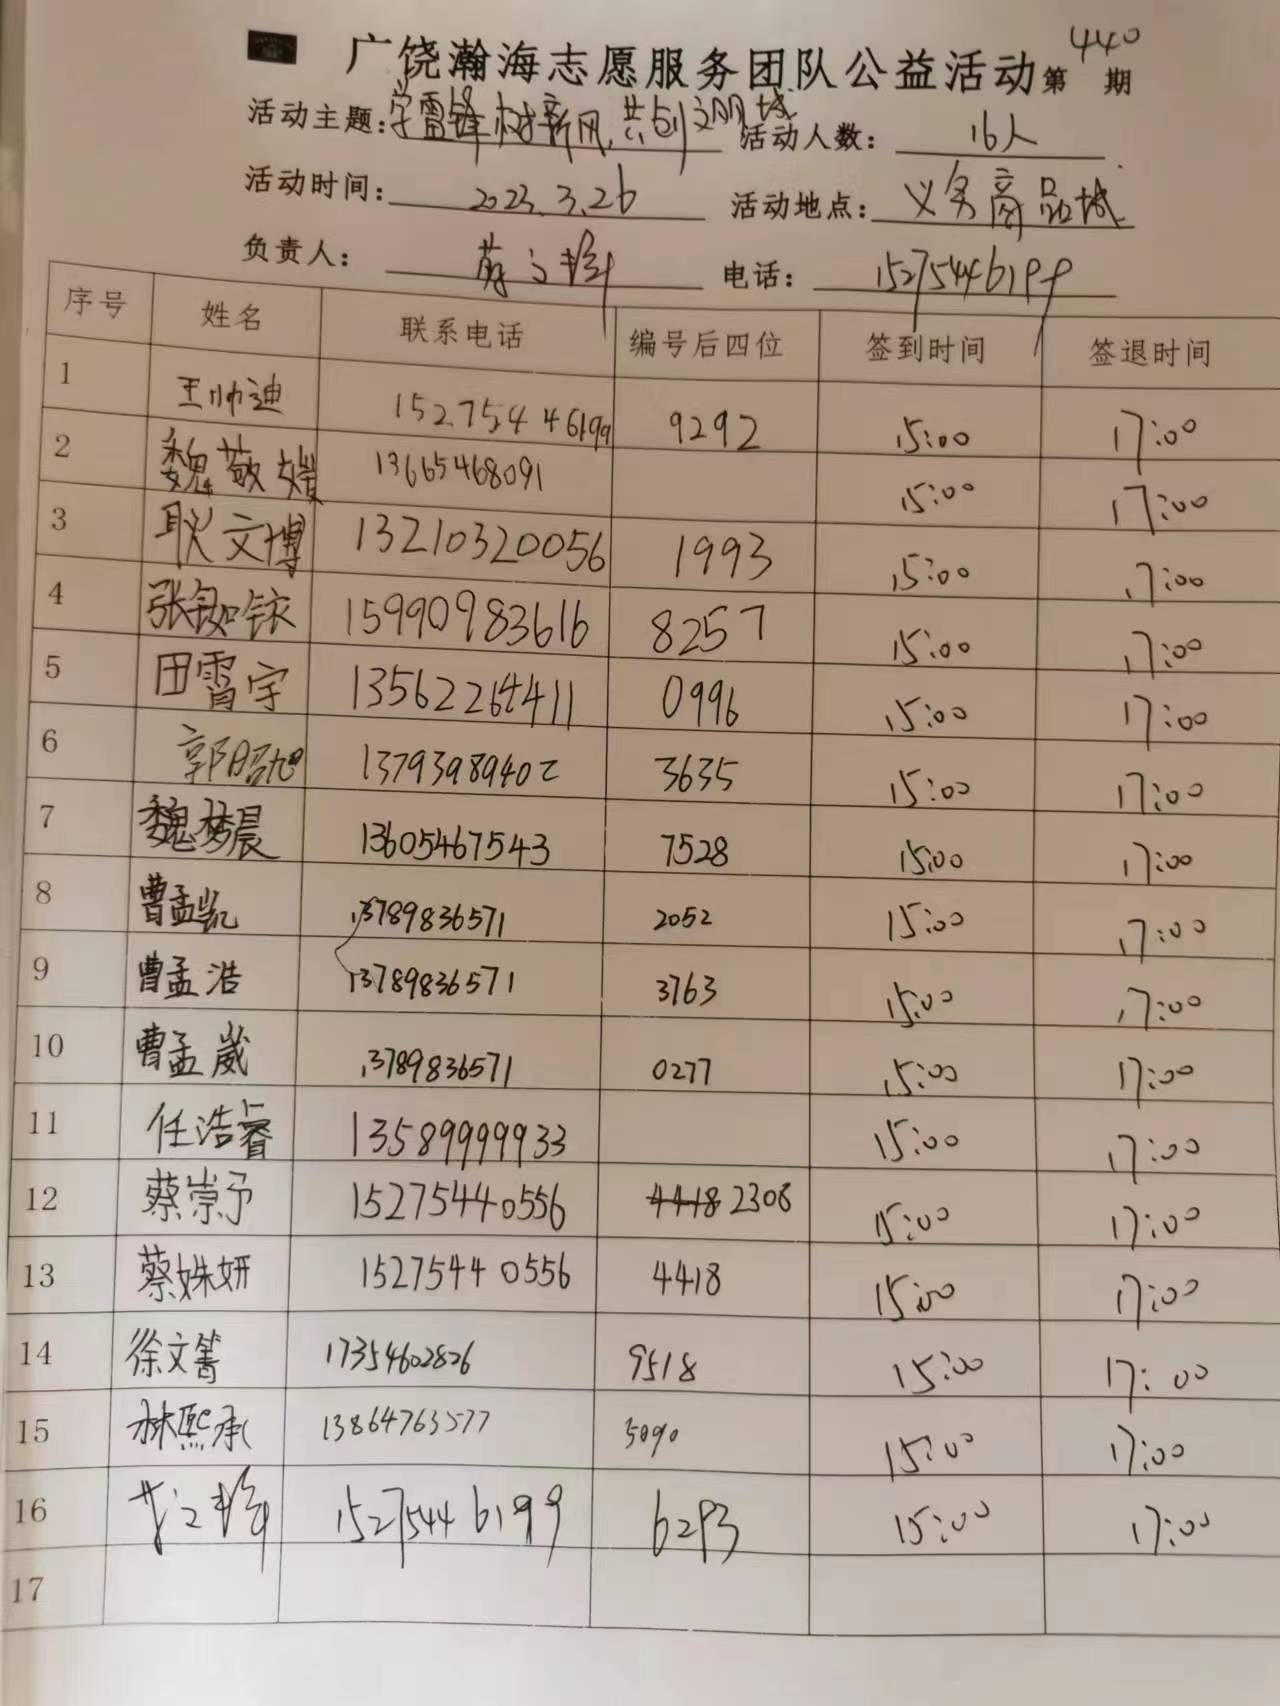 广饶瀚海志愿服务团队公益活动第440期
活动主题:学雷锋树新风,共创文明城 活动人数: 16人
活动时间: 2023.3.26 活动地点: 义务商品城
负责人: 电话: 15275446199
序号 姓名 联系电话 编号后四位 签到时间 签退时间
1 王帅迪 15275446199 9292 15:00 17:00
2 魏敬媛 13665468091 15:00 17:00
3 耿文博 13210320056 1993 15:00 17:00
4 张铷铱 15990983616 8257 15:00 17:00
5 田霄宇 13562264411 0996 15:00 17:00
6 郭昭旭 13793989402 3635 15:00 17:00
7 魏梦晨 13605467543 7528 15:00 17:00
8 曹孟凯 13789836571 2052 15:00 17:00
9 曹孟浩 13789836571 3763 15:00 17:00
10 曹孟崴 13789836571 0277 15:00 17:00
11 任浩睿 13589999933 15:00 17:00
12 蔡崇予 15275440556 4418 2308 15:00 17:00
13 蔡姝妍 15275440556 4418 15:00 17:00
14 徐文箐 17354602826 9518 15:00 17:00
15 林熙承 13864763577 5090 15:00 17:00
16 15275446199 6293 15:00 17:00
17